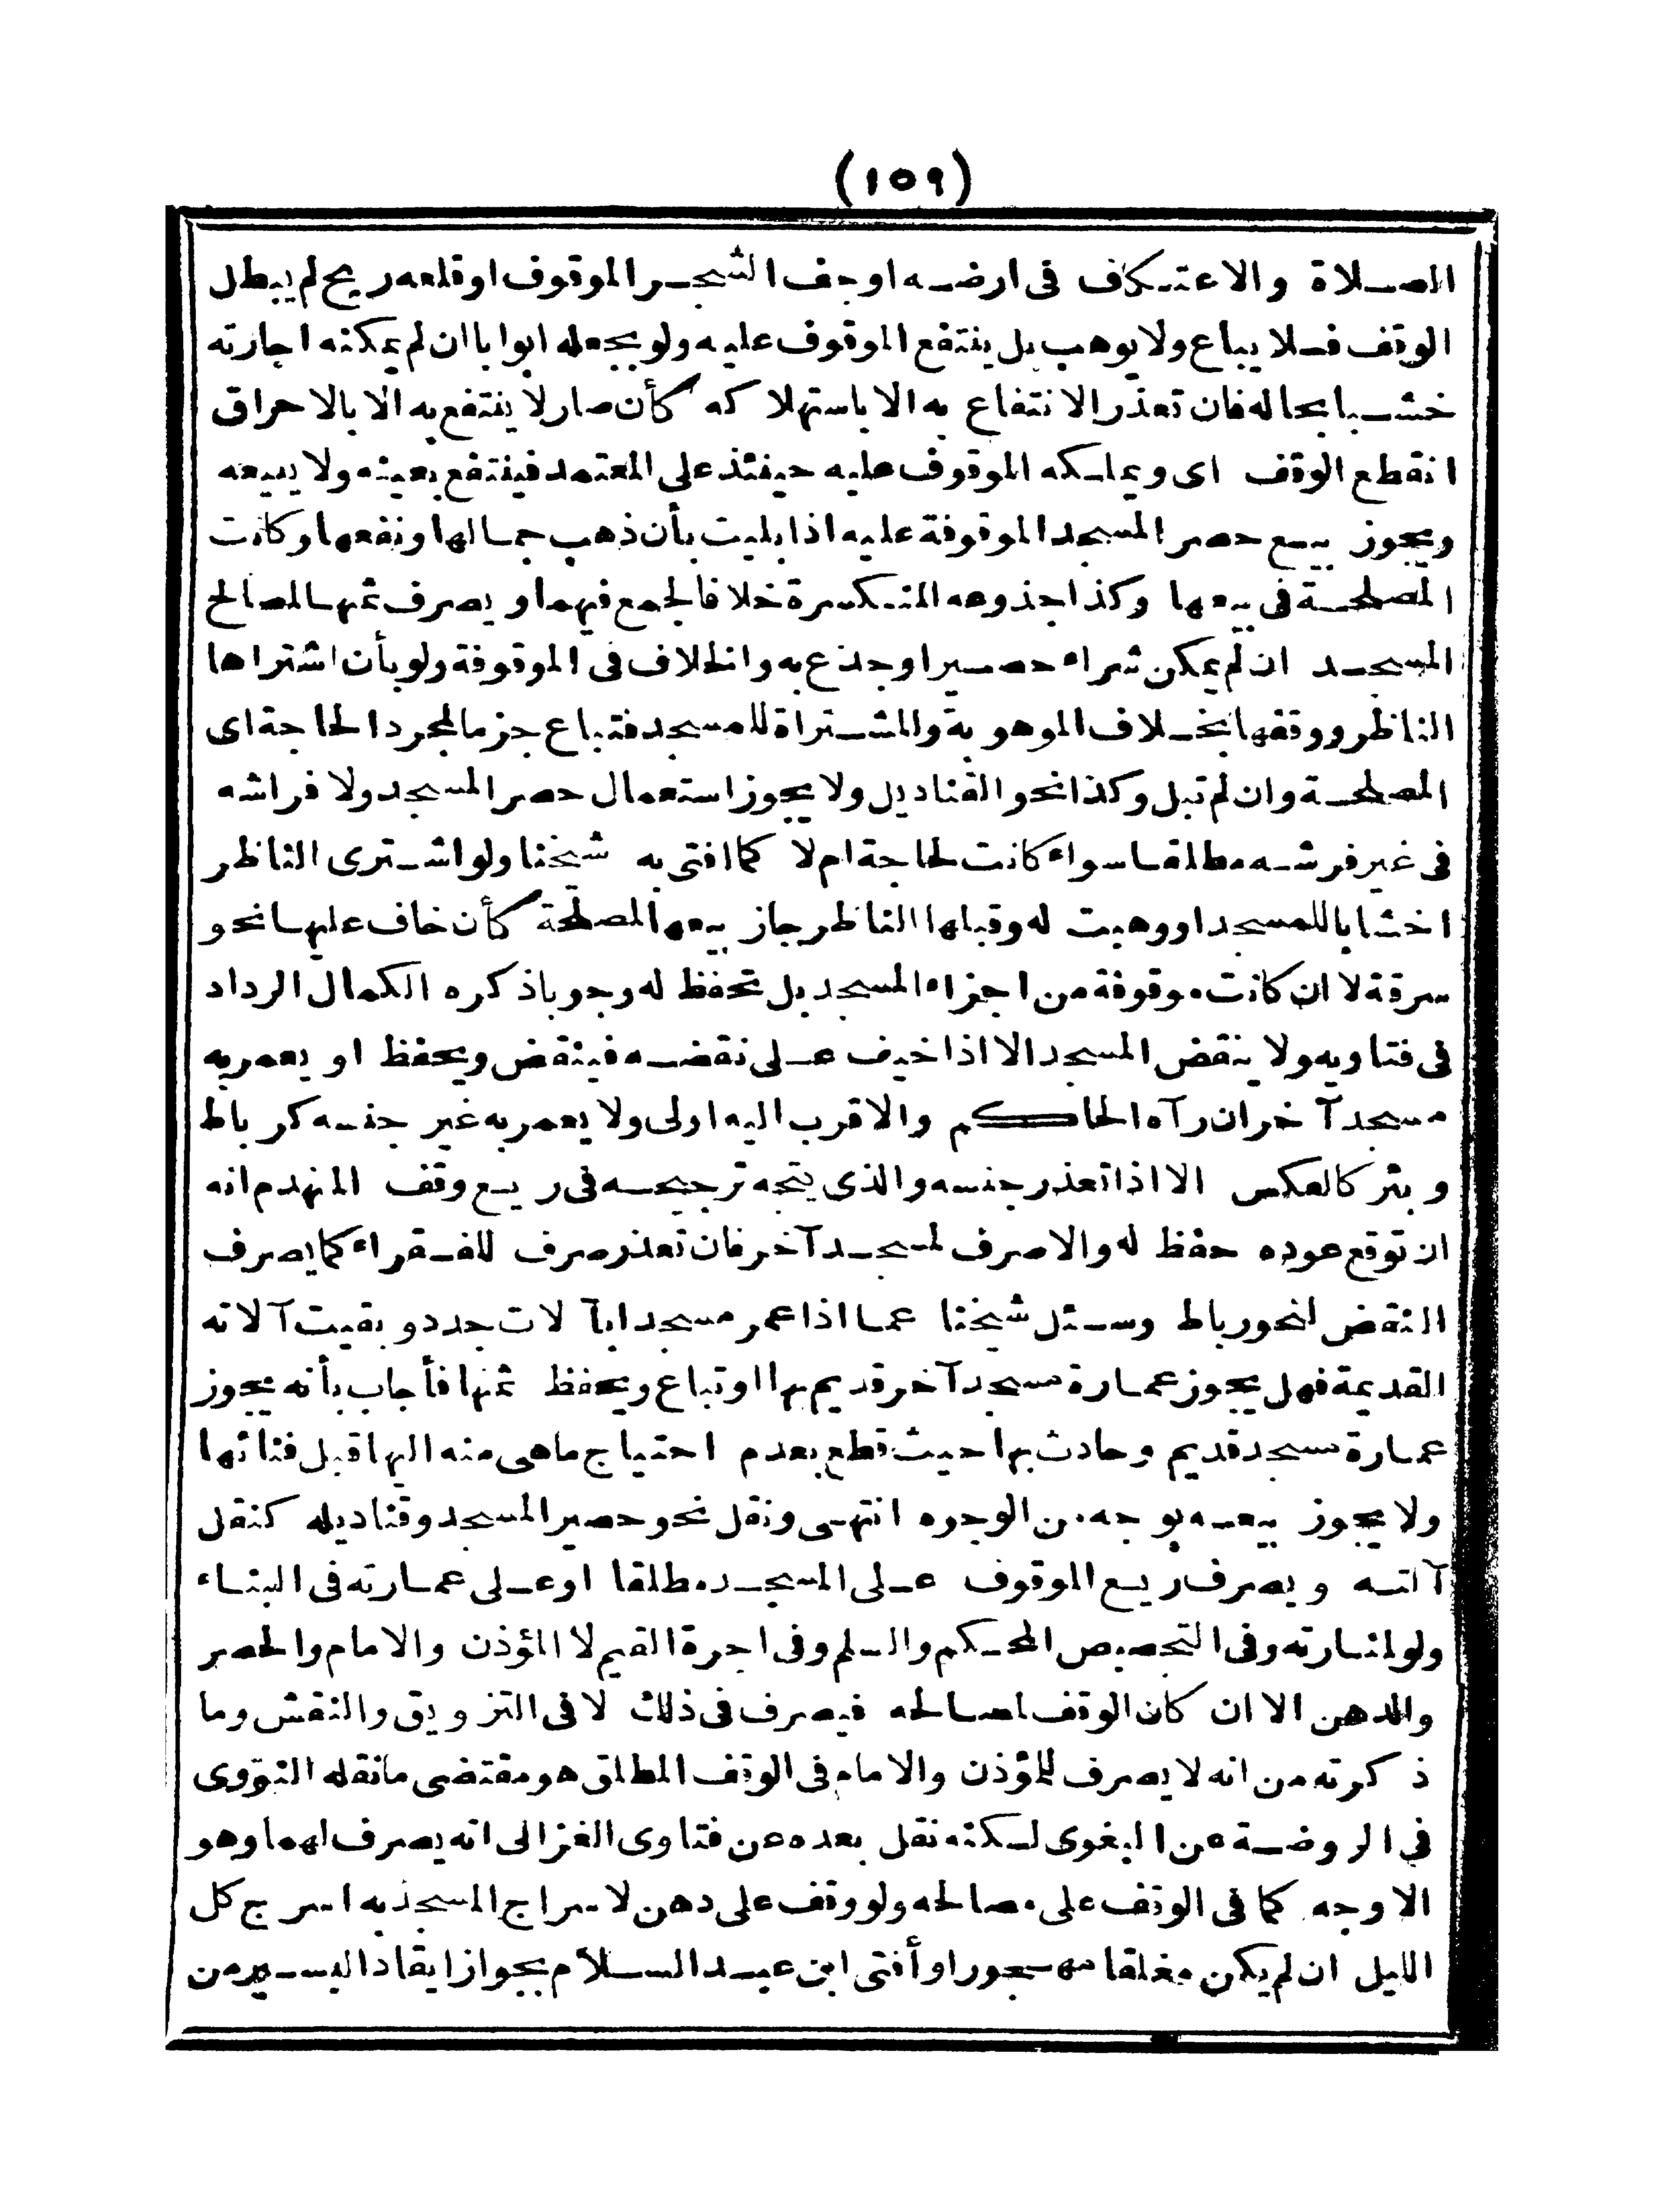 (١٥٩)
الصلاة والاعتكاف فى ارضه او جف الشجر الموقوف او قلعه ريح لم يبطل
الوقف فلا يباع ولا يوهب بل ينتفع الموقوف عليه ولو بجعله ابوابا ان لم يمكنه اجارته
خشبا بحاله فان تعذر الانتفاع به الا باستهلا كه كأن صار لا ينتفع به الا بالاحراق
انقطع الوقف اى ويملكه الموقوف عليه حينئذ على المعتمد فينتفع بعينه ولا يبيعه
ويجوز بيع حصر المسجد الموقوفة عليه اذا بليت بأن ذهب جمالها ونفعها وكانت
المصلحة فى بيعها وكذا جذوعه المنكسرة خلافا لجمع فيهما ويصرف ثمنها لمصالح
المسجد ان لم يمكن شراء حصير او جذع به والخلاف فى الموقوفة ولو بأن اشتراها
الناظر ووقفها بخلاف الموهوبة والمشتراة للمسجد فتباع جزما لمجرد الحاجة اى
المصلحة وان لم تبل وكذا نحو القناديل ولا يجوز استعمال حصر المسجد ولا فراشه
فى غير فرشه مطلقا سواء كانت لحاجة ام لا كما افتى به شيخنا ولو اشترى الناظر
اخشابا للمسجد او وهبت له وقبلها الناظر جاز بيعها لمصلحة كأن خاف عليها نحو
سرقة لا ان كانت موقوفة من اجزاء المسجد بل تحفظ له وجوبا ذكره الكمال الرداد
فى فتاويه ولا ينقض المسجد الا اذا خيف على نقضه فينقض ويحفظ او يعمر به
مسجد آخر ان رآه الحاكم والاقرب اليه اولى ولا يعمر به غير جنسه كرباط
وبئر كالعكس الا اذا تعذر جنسه والذى يتجه ترجيحه فى ريع وقف المنهدم انه
ان توقع عوده حفظ له والا صرف لمسجد آخر فان تعذر صرف للفقراء كما يصرف
النقض لنحو رباط وسئل شيخنا عما اذا عمر مسجد ابآ لات جدد وبقيت آلاته
القديمة فهل يجوز عمارة مسجد آخر قديم بها او تباع ويحفظ ثمنها فأجاب بأنه يجوز
عمارة مسجد قديم وحادث بها حيث قطع بعدم احتياج ماهى منه اليها قبل فنائها
ولا يجوز بيعه بوجه من الوجوه انتهى ونقل نحو حصير المسجد وقناديله كنقل
آلته ويصرف ريع الموقوف على المسجد مطلقا او على عمارته فى البناء
ولو لمنارته وفى التجصيص المحكم والسلم وفى اجرة القيم لا المؤذن والامام والحصر
والدهن الا ان كان الوقف لمصالحه فيصرف فى ذلك لا فى التزويق والنقش وما
ذكرته من انه لا يصرف للمؤذن والامام فى الوقف المطلق هو مقتضى ما نقله النووى
فى الروضة عن البغوى لكنه نقل بعده عن فتاوى الغزالى انه يصرف لهما وهو
الاوجه كما فى الوقف على مصالحه ولو وقف على دهن لاسراج المسجد به اسرج كل
الليل ان لم يكن مغلقا مهجورا وأفتى ابن عبد السلام بجواز ايقاد اليسير من